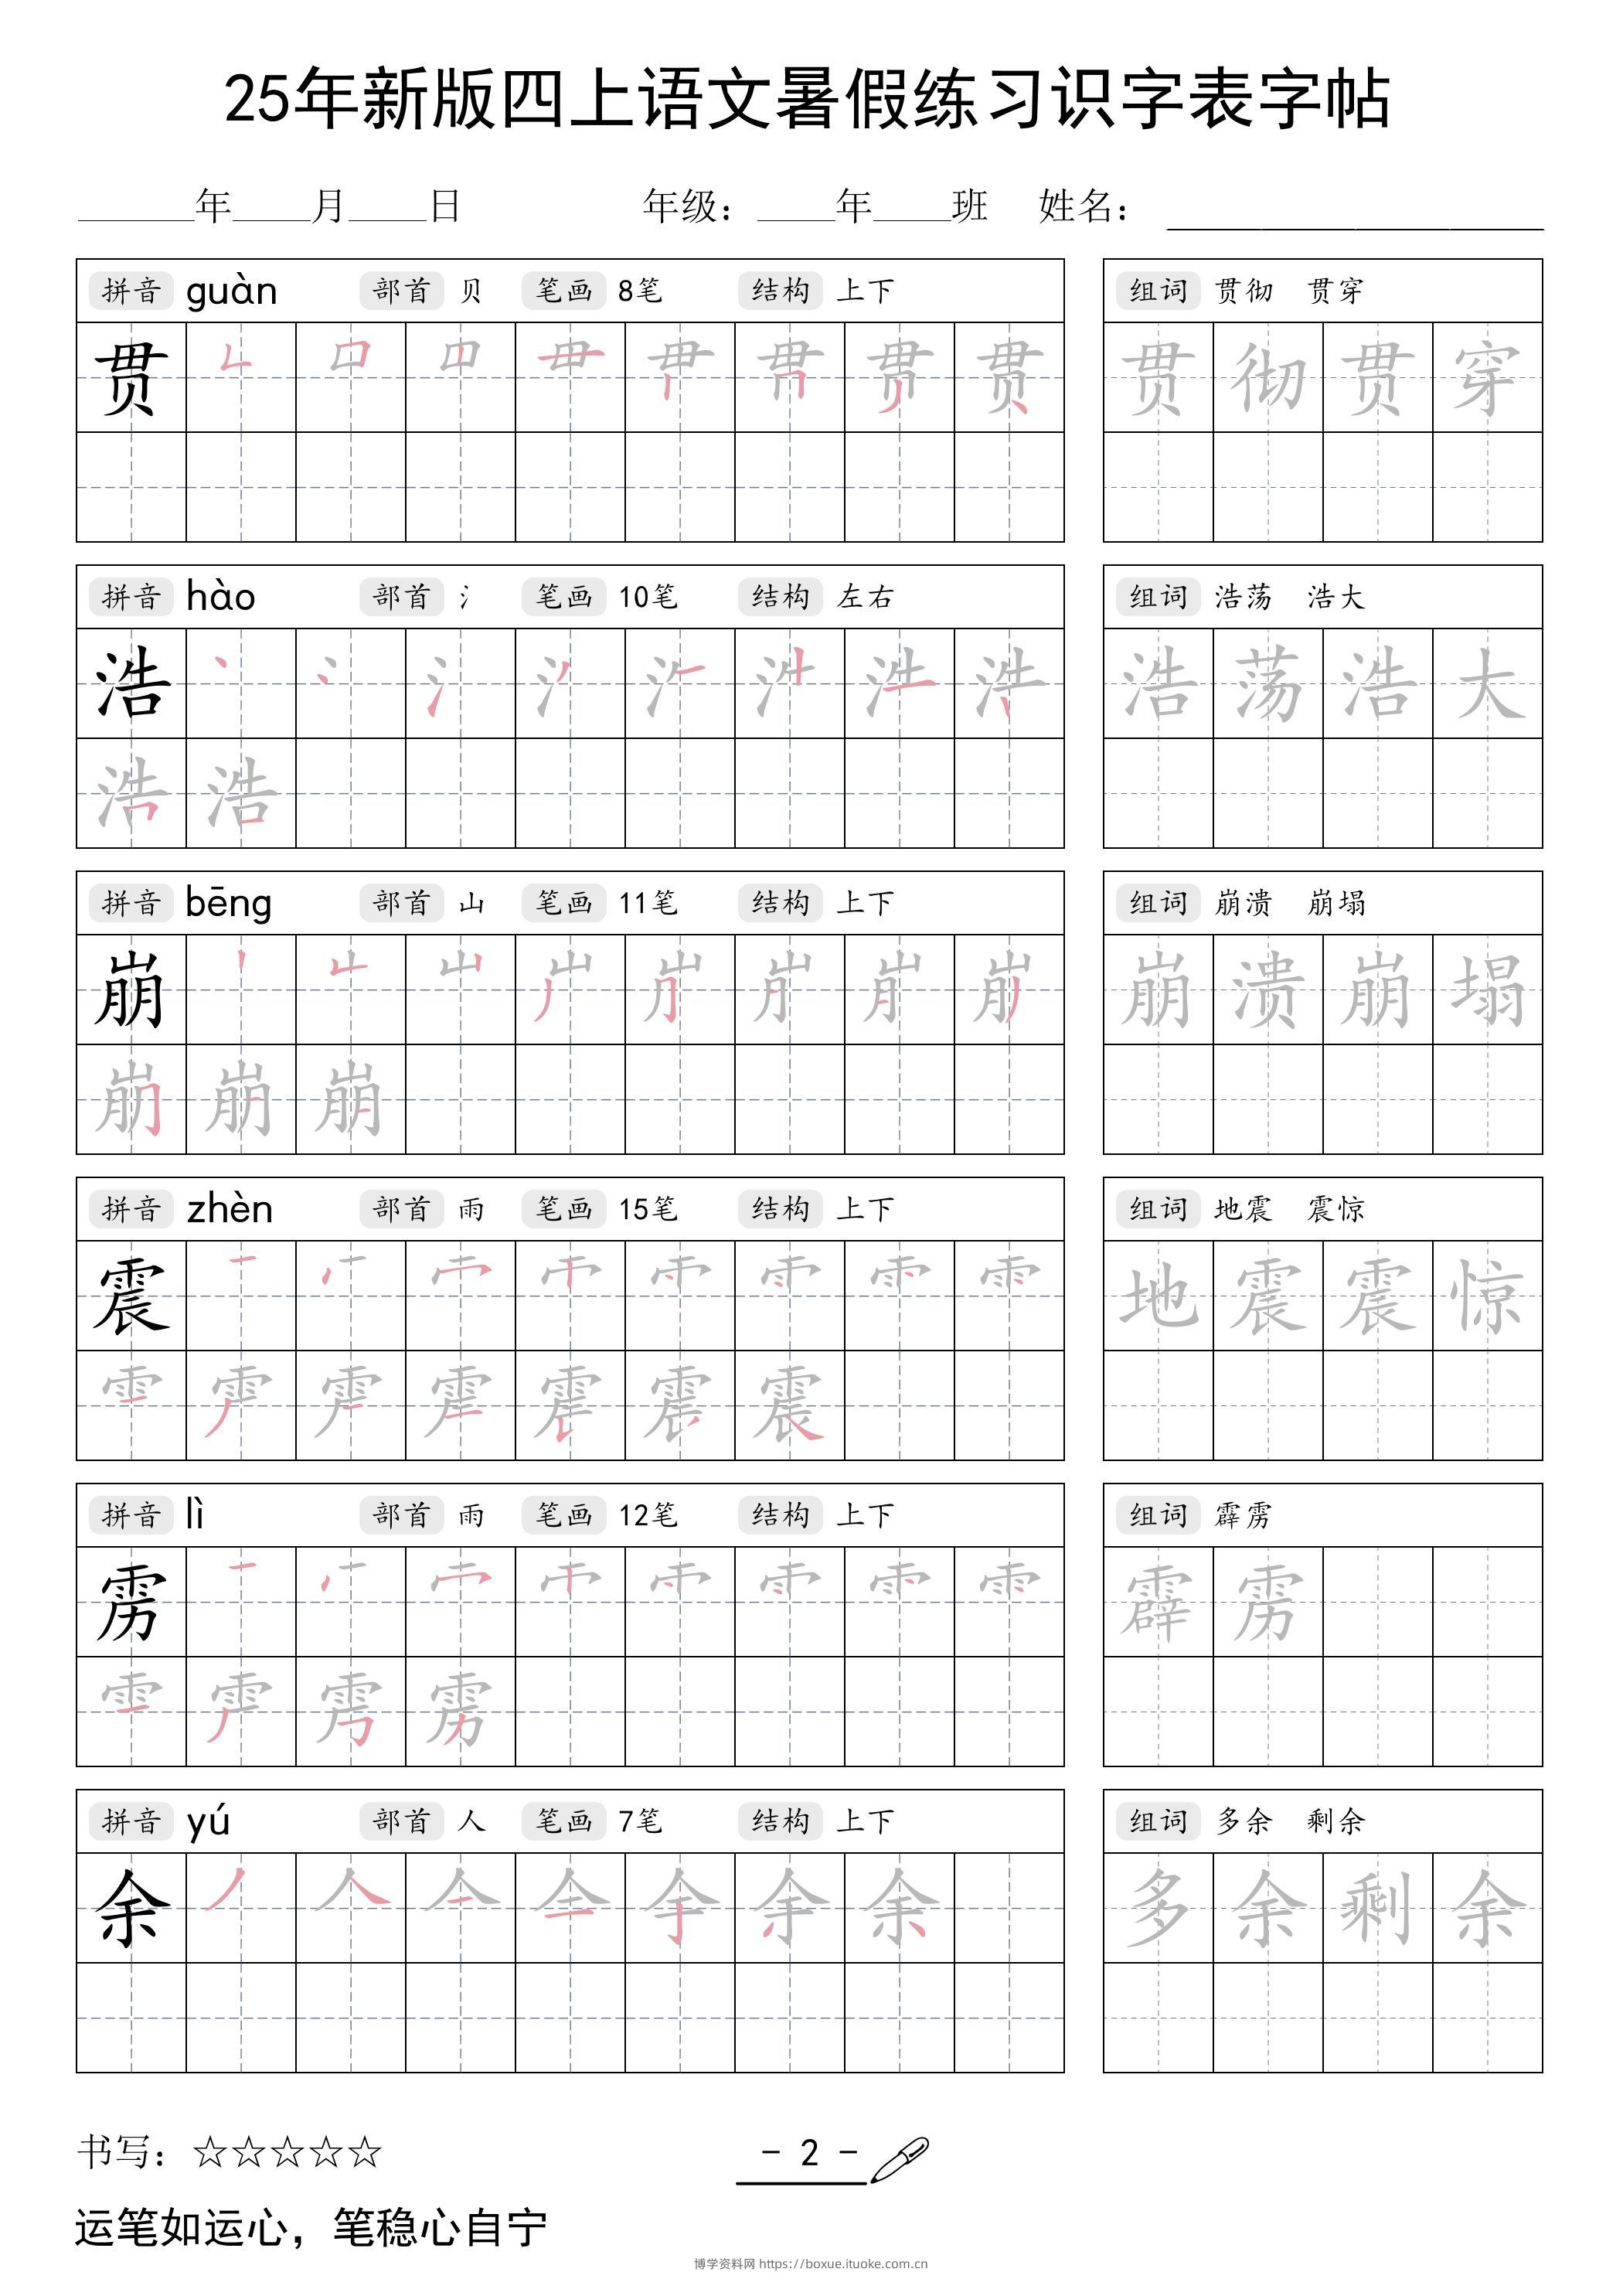 25年新版四上语文暑假练习识字表字帖
______年____月____日 年级：____年____班 姓名：____________________
拼音 guàn 部首 贝 笔画 8笔 结构 上下
组词 贯彻 贯穿
贯
贯彻贯穿
拼音 hào 部首 氵 笔画 10笔 结构 左右
组词 浩荡 浩大
浩
浩荡浩大
浩浩
拼音 bēng 部首 山 笔画 11笔 结构 上下
组词 崩溃 崩塌
崩
崩溃崩塌
崩崩崩
拼音 zhèn 部首 雨 笔画 15笔 结构 上下
组词 地震 震惊
震
地震震惊
震
拼音 lì 部首 雨 笔画 12笔 结构 上下
组词 霹雳
雳
霹雳
雳
拼音 yú 部首 人 笔画 7笔 结构 上下
组词 多余 剩余
余
多余剩余
书写：☆☆☆☆☆
- 2 -
运笔如运心，笔稳心自宁
博学资料网 https://boxue.ituoke.com.cn